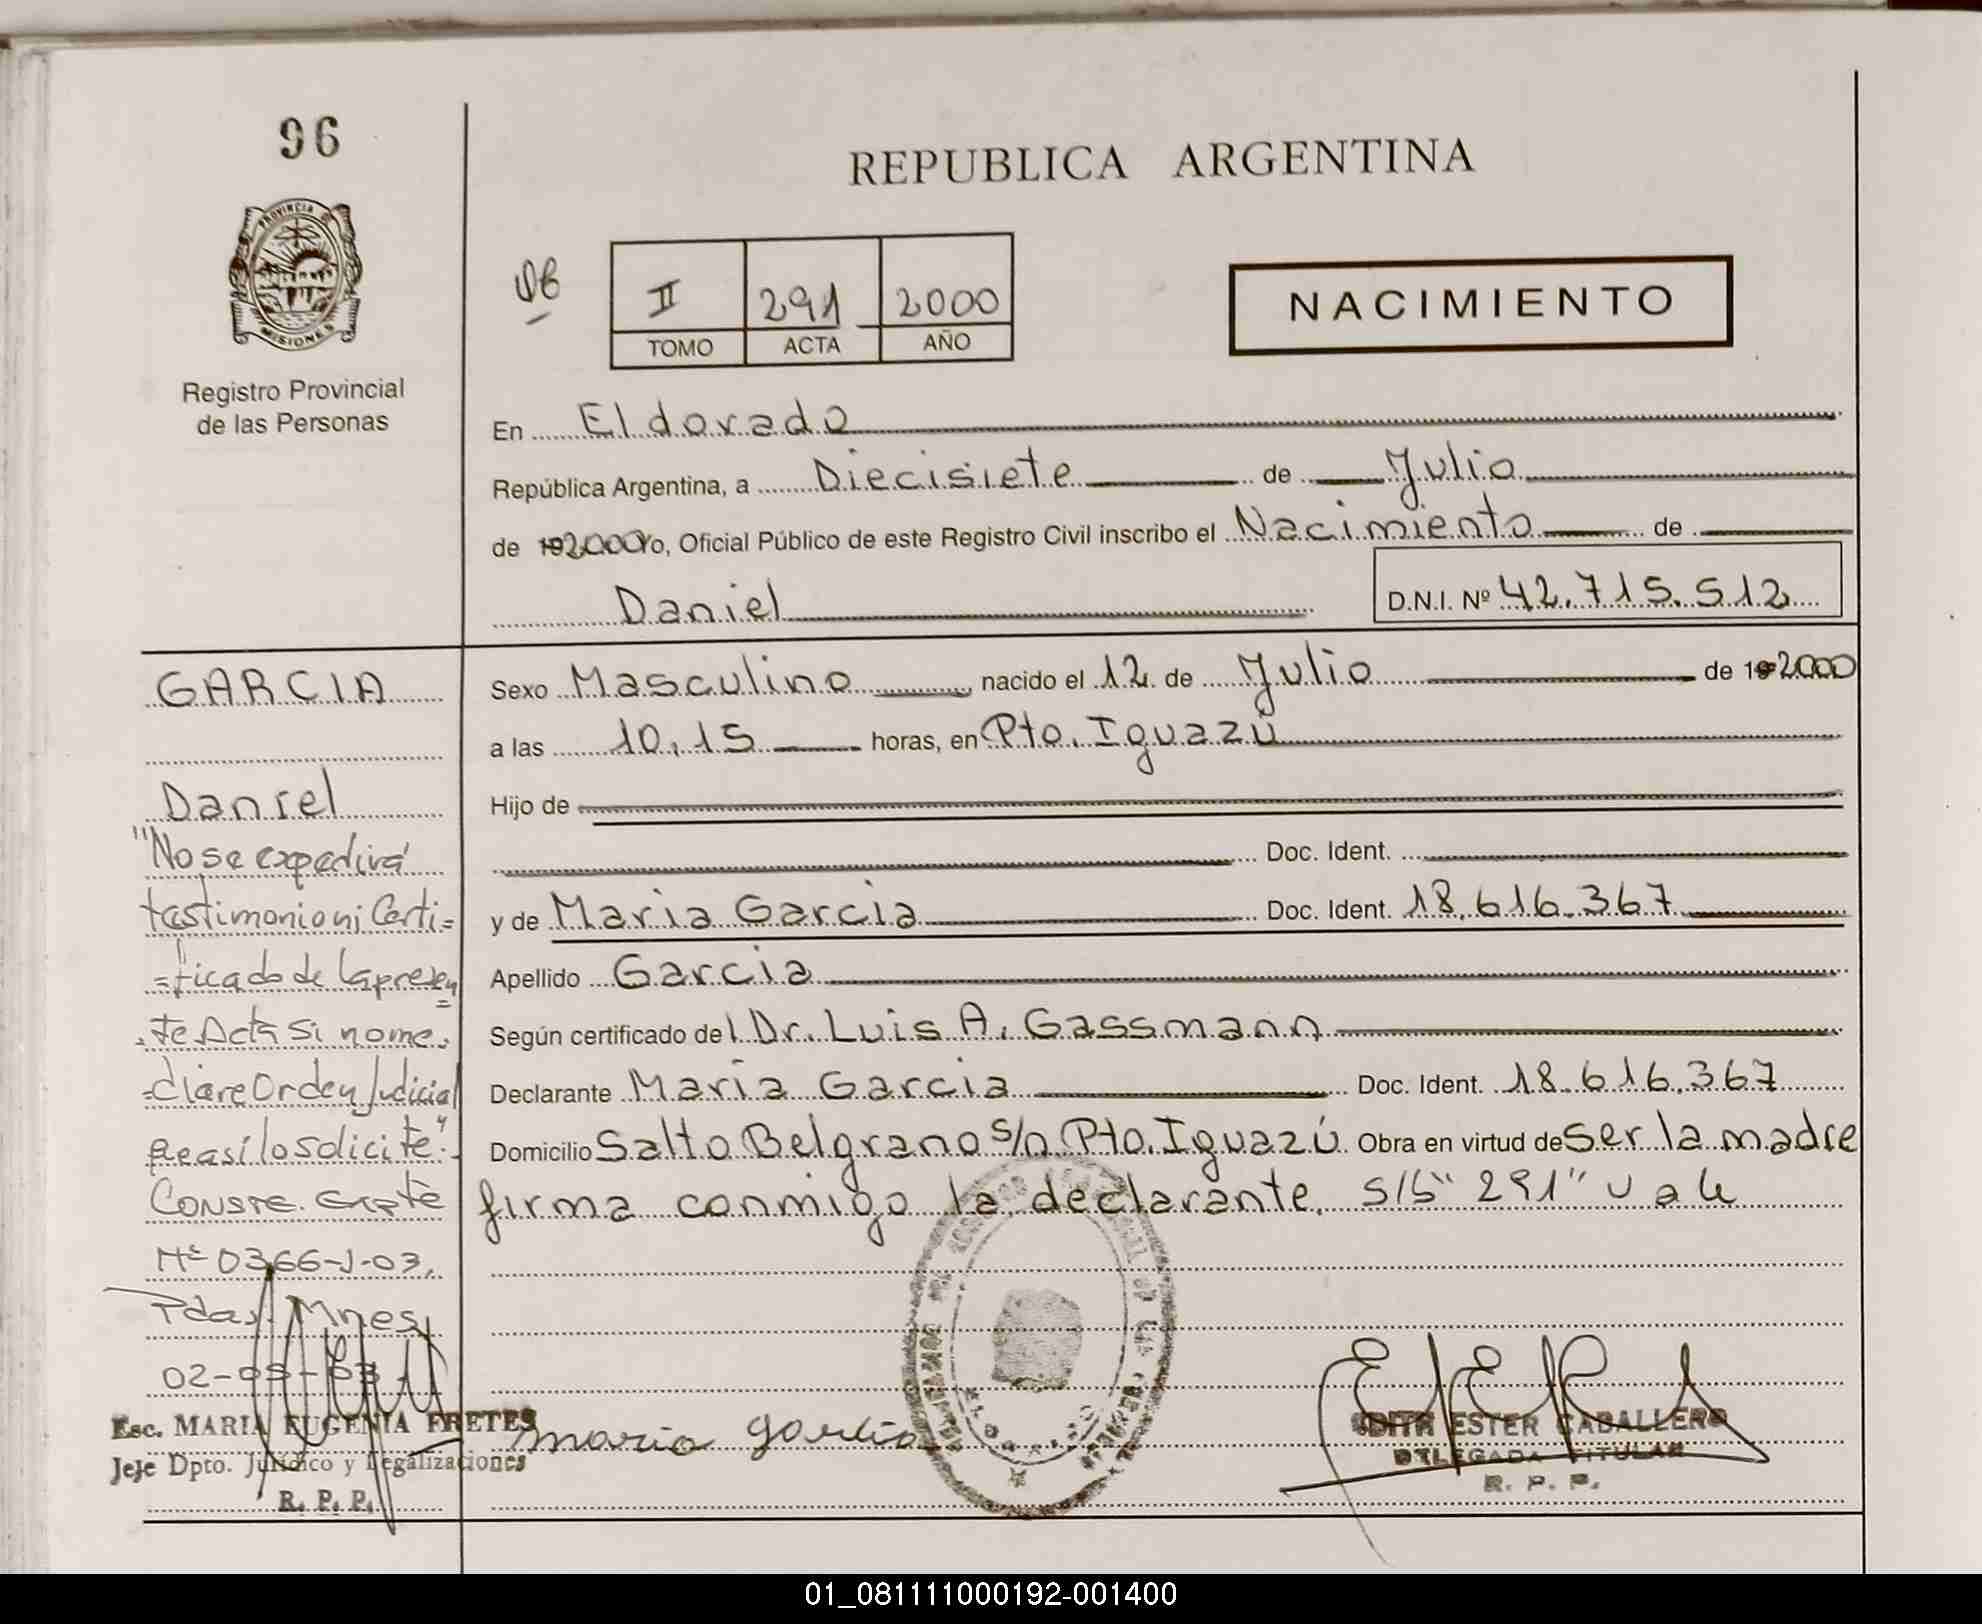 96
REPUBLICA ARGENTINA
PROVINCIA DE
MISIONES
Registro Provincial
de las Personas
II 291 2000
TOMO ACTA AÑO
NACIMIENTO
En Eldorado
República Argentina, a Diecisiete de Julio
de 192000 Yo, Oficial Público de este Registro Civil inscribo el Nacimiento de
Daniel D.N.I. Nº 42.715.512
GARCIA
Daniel
"No se expedirá
testimonio ni Certi=
=ficado de la presen
=
te Acta si no me.
=diare Orden Judicial
que así lo solicite".
Conste. Expte
Nº 0366-J-03.
Pdas. Mnes
02-09-03
Esc. MARIA EUGENIA FRETES
Jefe Dpto. Jurídico y Legalizaciones
R. P. P.
Sexo Masculino nacido el 12 de Julio de 192000
a las 10,15 horas, en Pto. Iguazú
Hijo de
Doc. Ident.
y de Maria Garcia Doc. Ident. 18.616.367
Apellido Garcia
Según certificado del Dr. Luis A. Gassmann
Declarante Maria Garcia Doc. Ident. 18.616.367
Domicilio Salto Belgrano s/n Pto. Iguazú Obra en virtud de ser la madre
firma conmigo la declarante. S/b "291" Vale
maria garcia
EDITH ESTER CABALLERO
DELEGADA TITULAR
R. P. P.
01_081111000192-001400